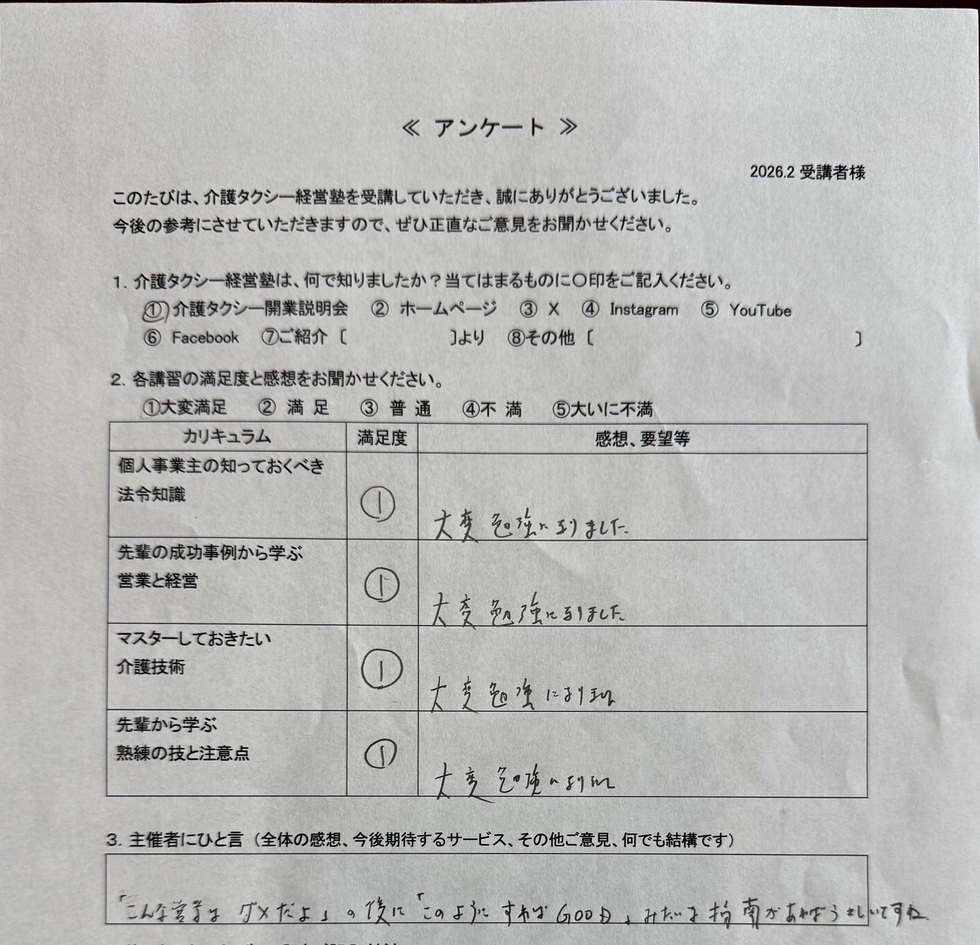 ≪ アンケート ≫
2026.2 受講者様
このたびは、介護タクシー経営塾を受講していただき、誠にありがとうございました。
今後の参考にさせていただきますので、ぜひ正直なご意見をお聞かせください。
1. 介護タクシー経営塾は、何で知りましたか？当てはまるものに〇印をご記入ください。
①介護タクシー開業説明会 ② ホームページ ③ X ④ Instagram ⑤ YouTube
⑥ Facebook ⑦ご紹介〔 〕より ⑧その他〔 〕
2. 各講習の満足度と感想をお聞かせください。
①大変満足 ② 満 足 ③ 普 通 ④不 満 ⑤大いに不満
カリキュラム 満足度 感想、要望等
個人事業主の知っておくべき
法令知識
① 大変勉強になりました。
先輩の成功事例から学ぶ
営業と経営
① 大変勉強になりました。
マスターしておきたい
介護技術
① 大変勉強になりました
先輩から学ぶ
熟練の技と注意点
① 大変勉強になりました
3. 主催者にひと言（全体の感想、今後期待するサービス、その他ご意見、何でも結構です）
「こんな営業はダメだよ」の後に「このようにすれば GOOD」みたいな指南があればうれしいですね。